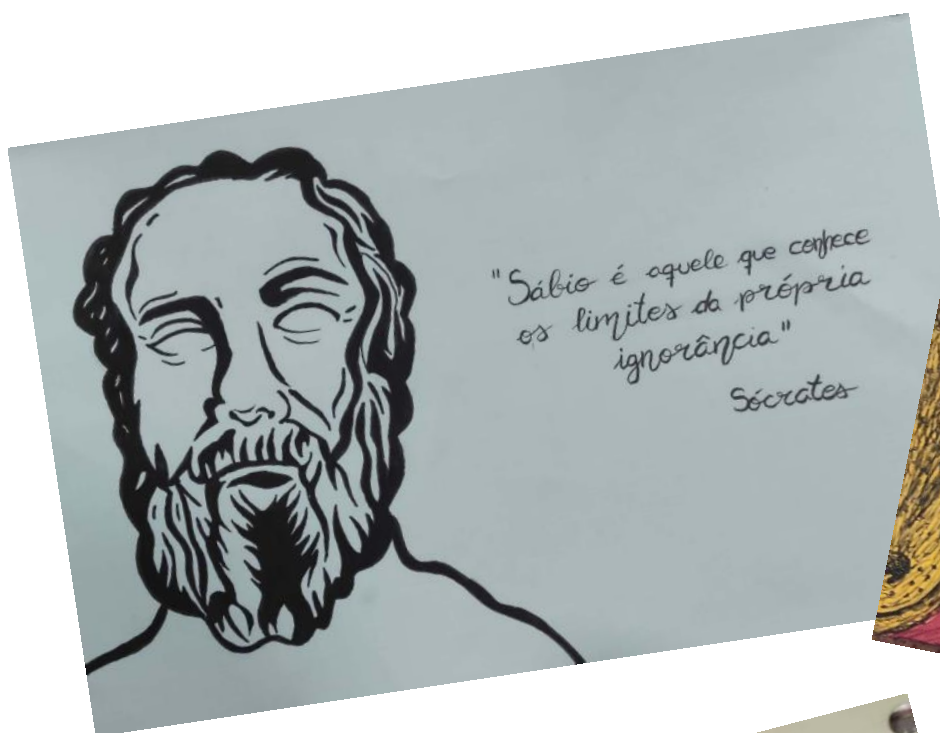 "Sábio é aquele que conhece
os limites da própria
ignorância"
Sócrates